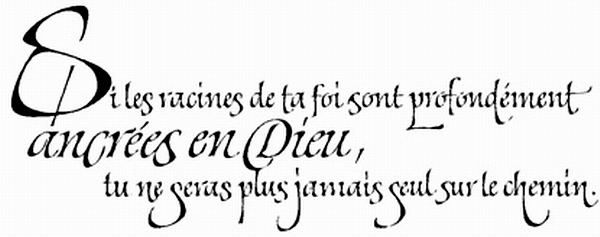 Si les racines de ta foi sont profondément
ancrées en Dieu,
tu ne seras plus jamais seul sur le chemin.